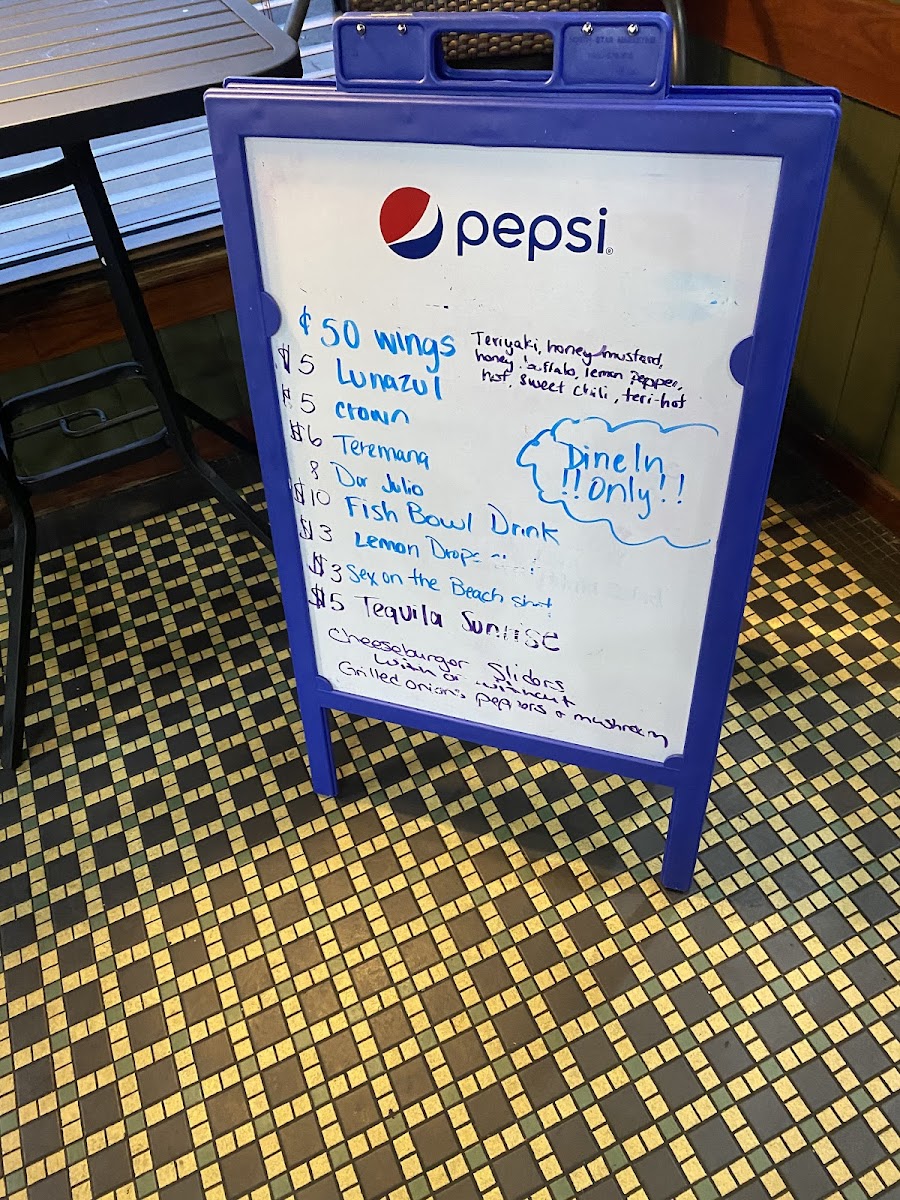 pepsi
¢50 wings
Teriyaki, honey mustard,
honey buffalo, lemon pepper,
hot, sweet chili, teri-hot
$5 Lunazul
$5 crown
$6 Teremana
8 Don Julio
$10 Fish Bowl Drink
$3 Lemon Drops
$3 Sex on the Beach shot
$5 Tequila Sunrise
Dine In
!!Only!!
Cheeseburger Sliders
with or without
Grilled onions peppers &